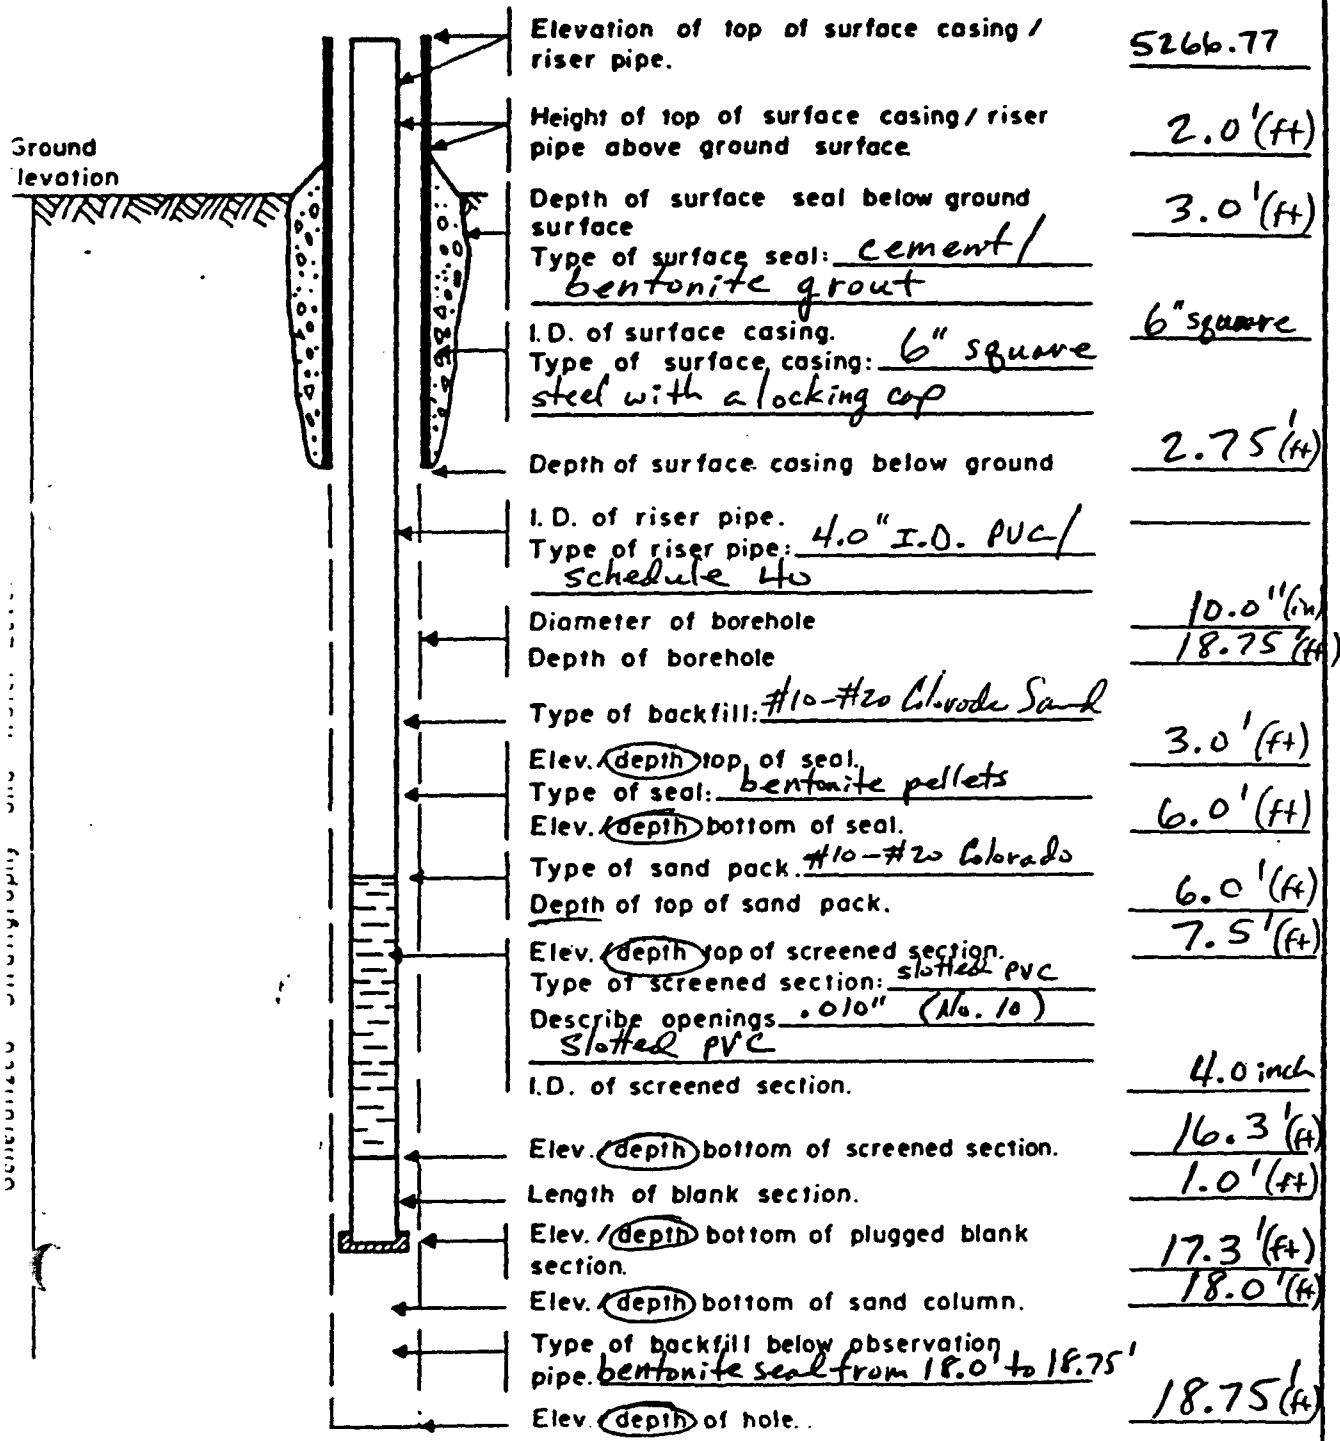 Elevation of top of surface casing /
riser pipe.
5266.77
Height of top of surface casing / riser
pipe above ground surface
2.0' (ft)
Ground
levation
Depth of surface seal below ground
surface
3.0' (ft)
Type of surface seal: cement /
bentonite grout
I.D. of surface casing.
6" square
Type of surface casing: 6" square
steel with a locking cap
Depth of surface casing below ground
2.75' (ft)
I.D. of riser pipe.
Type of riser pipe: 4.0" I.D. PVC /
schedule 40
Diameter of borehole
10.0" (in)
Depth of borehole
18.75' (ft)
Type of backfill: #10-#20 Colorado Sand
Elev. / depth top of seal.
3.0' (ft)
Type of seal: bentonite pellets
Elev. / depth bottom of seal.
6.0' (ft)
Type of sand pack. #10-#20 Colorado
Depth of top of sand pack.
6.0' (ft)
Elev. / depth top of screened section.
7.5' (ft)
Type of screened section: slotted PVC
Describe openings .010" (No. 10)
Slotted PVC
I.D. of screened section.
4.0 inch
Elev. / depth bottom of screened section.
16.3' (ft)
Length of blank section.
1.0' (ft)
Elev. / depth bottom of plugged blank
section.
17.3' (ft)
Elev. / depth bottom of sand column.
18.0' (ft)
Type of backfill below observation
pipe. bentonite seal from 18.0' to 18.75'
Elev. depth of hole.
18.75' (ft)